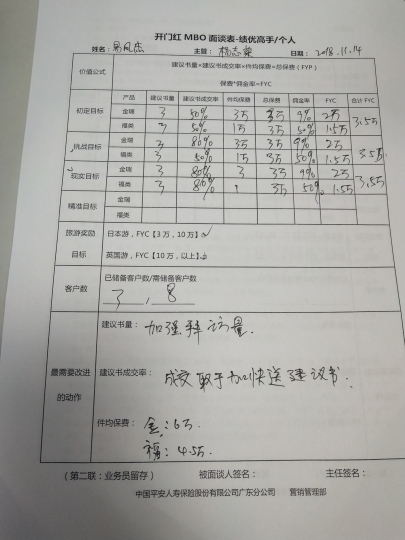 开门红 MBO 面谈表-绩优高手/个人
姓名: 主管: 杨志 日期: 2018.11.14
价值公式 建议书量×建议书成交率×件均保费=总保费(FYP)
保费*佣金率=FYC
产品 建议书量 建议书成交率 件均保费 总保费 佣金率 FYC 合计 FYC
初定目标 金瑞 3 50% 3万 3万 9% 2万 3.5万
福类 3 50% 1万 3万 50% 1.5万
挑战目标 金瑞 3 80% 3万 3万 9% 2万 3.5万
福类 3 50% 1万 3万 50% 1.5万
现实目标 金瑞 3 80% 3 3万 9% 2万 3.5万
福类 3 80% 1 3万 50% 1.5万
精准目标 金瑞
福类
旅游奖励 日本游,FYC【3 万,10 万】
目标 英国游,FYC【10 万,以上】
客户数 已储备客户数/需储备客户数
3 , 8
最需要改进的动作
建议书量: 加强拜访量.
建议书成交率: 成交取于加快送建议书.
件均保费: 金: 6万
福: 4.5万
(第二联:业务员留存) 被面谈人签名: 主任签名:
中国平安人寿保险股份有限公司广东分公司 营销管理部